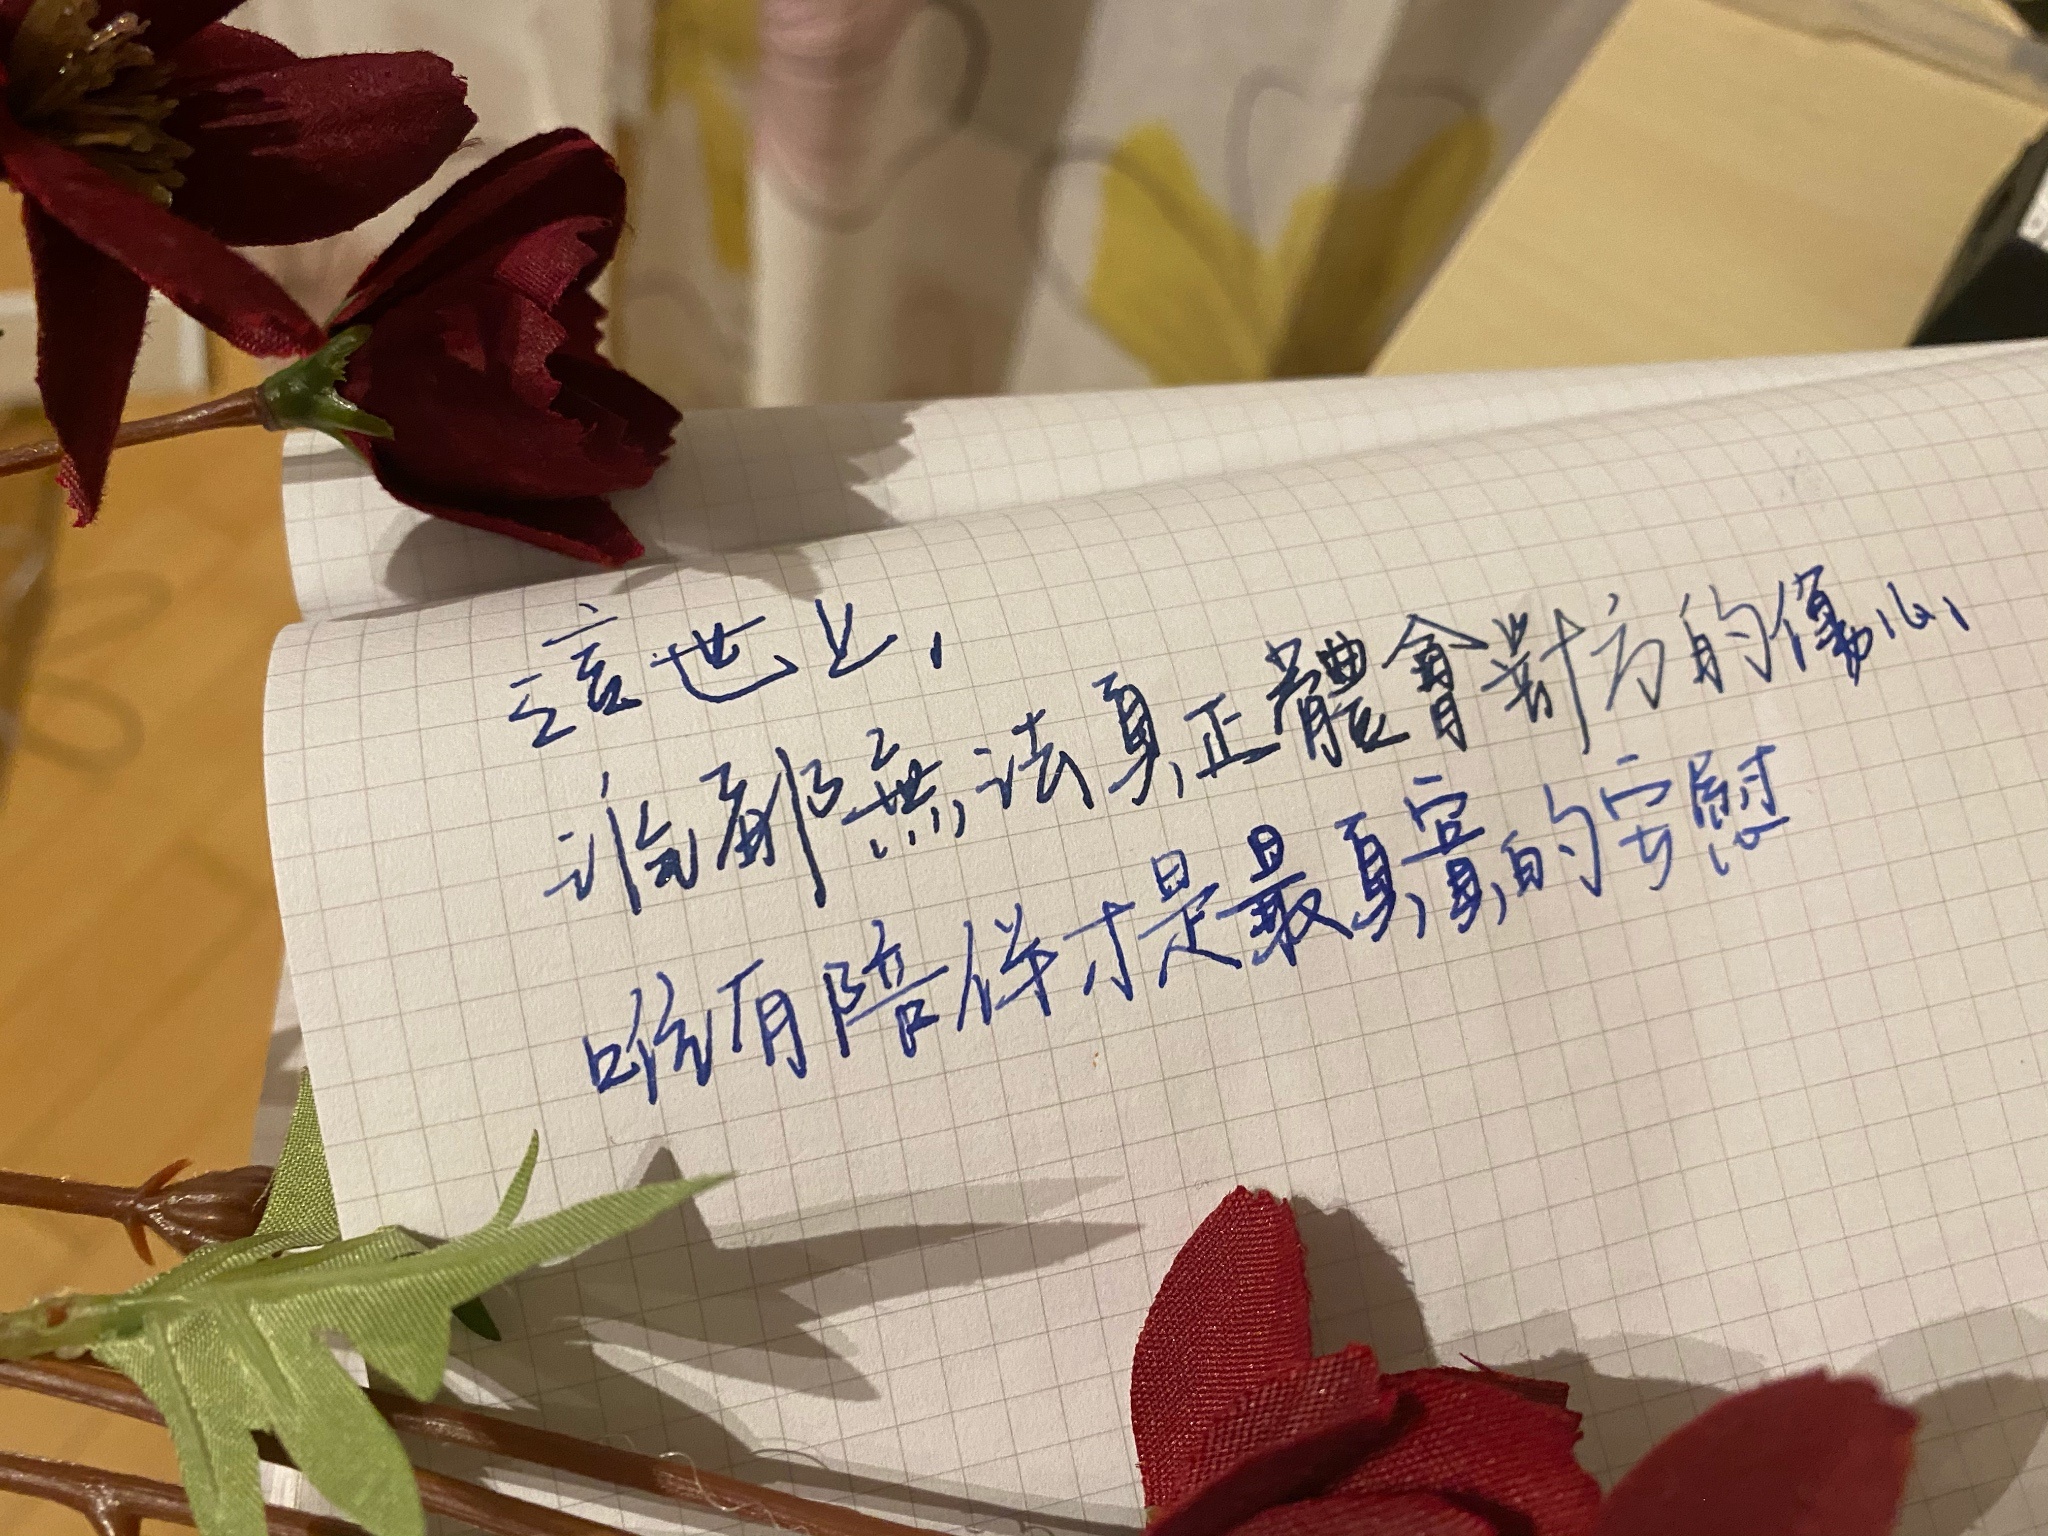 這世上,
誰都無法真正體會對方的傷心,
唯有陪伴才是最真實的安慰